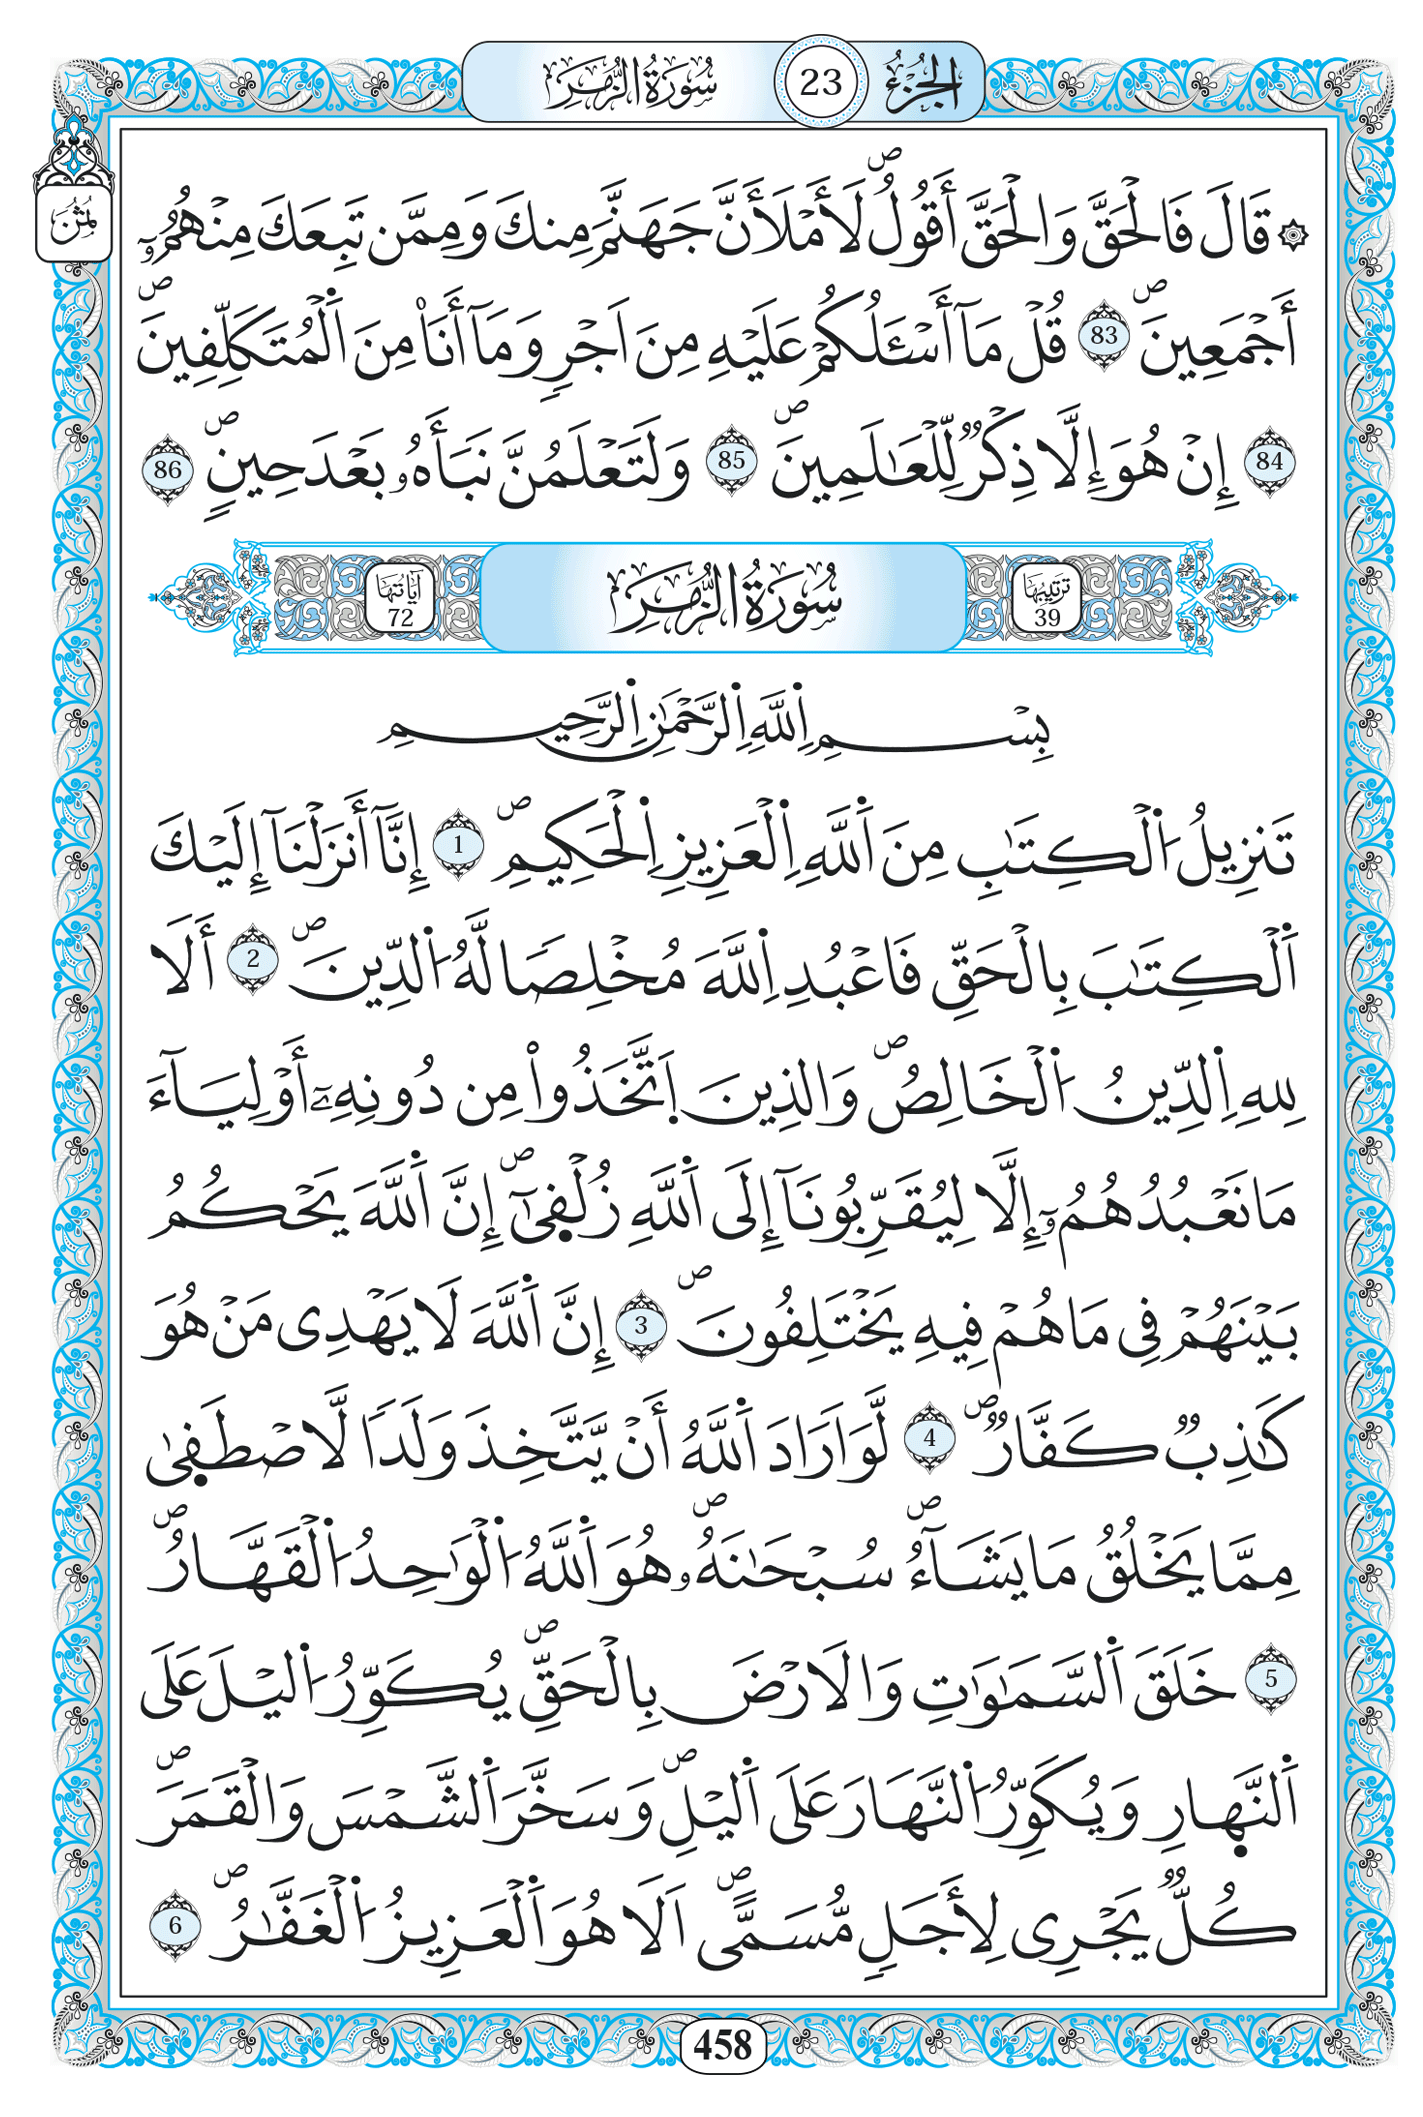 الجزء 23 سورة الزمر
ثمن
۞ قَالَ فَالْحَقَّ وَالْحَقَّ أَقُولُ لَأَمْلَأَنَّ جَهَنَّمَ مِنكَ وَمِمَّن تَبِعَكَ مِنْهُمُۥٓ
أَجْمَعِينَ 83 قُلْ مَآ أَسْـَٔلُكُمْ عَلَيْهِ مِنَ اَجْرٖ وَمَآ أَنَا۠ مِنَ اَ۬لْمُتَكَلِّفِينَ
84 إِنْ هُوَ إِلَّا ذِكْرٞ لِّلْعَٰلَمِينَ 85 وَلَتَعْلَمُنَّ نَبَأَهُۥ بَعْدَ حِينٖ 86
ترتيبها 39 سُورَةُ الزُّمَرِ آياتها 72
بِسْمِ اِ۬للَّهِ اِ۬لرَّحْمَٰنِ اِ۬لرَّحِيمِ
تَنزِيلُ اُ۬لْكِتَٰبِ مِنَ اَ۬للَّهِ اِ۬لْعَزِيزِ اِ۬لْحَكِيمِ 1 إِنَّآ أَنزَلْنَآ إِلَيْكَ
اَ۬لْكِتَٰبَ بِالْحَقِّ فَاعْبُدِ اِ۬للَّهَ مُخْلِصاٗ لَّهُ اُ۬لدِّينَ 2 أَلَا
لِلهِ اِ۬لدِّينُ اُ۬لْخَالِصُ وَالذِينَ اَ۪تَّخَذُواْ مِن دُونِهِۦٓ أَوْلِيَآءَ
مَا نَعْبُدُهُمُۥٓ إِلَّا لِيُقَرِّبُونَآ إِلَى اَ۬للَّهِ زُلْف۪ىٰٓ إِنَّ اَ۬للَّهَ يَحْكُمُ
بَيْنَهُمْ فِى مَا هُمْ فِيهِ يَخْتَلِفُونَ 3 إِنَّ اَ۬للَّهَ لَا يَهْدِى مَنْ هُوَ
كَٰذِبٞ كَفَّارٞ 4 لَّوَ اَرَادَ اَ۬للَّهُ أَنْ يَّتَّخِذَ وَلَداٗ لَّاصْطَف۪ىٰ
مِمَّا يَخْلُقُ مَا يَشَآءُ سُبْحَٰنَهُۥ هُوَ اَ۬للَّهُ اُ۬لْوَٰحِدُ اُ۬لْقَهَّارُ
5 خَلَقَ اَ۬لسَّمَٰوَٰتِ وَالَارْضَ بِالْحَقِّ يُكَوِّرُ اُ۬ليْلَ عَلَى
اَ۬لنَّه۪ارِ وَيُكَوِّرُ اُ۬لنَّهَارَ عَلَى اَ۬ليْلِ وَسَخَّرَ اَ۬لشَّمْسَ وَالْقَمَرَ
كُلّٞ يَجْرِى لِأَجَلٖ مُّسَمّيً اَلَا هُوَ اَ۬لْعَزِيزُ اُ۬لْغَفَّٰرُ 6
458